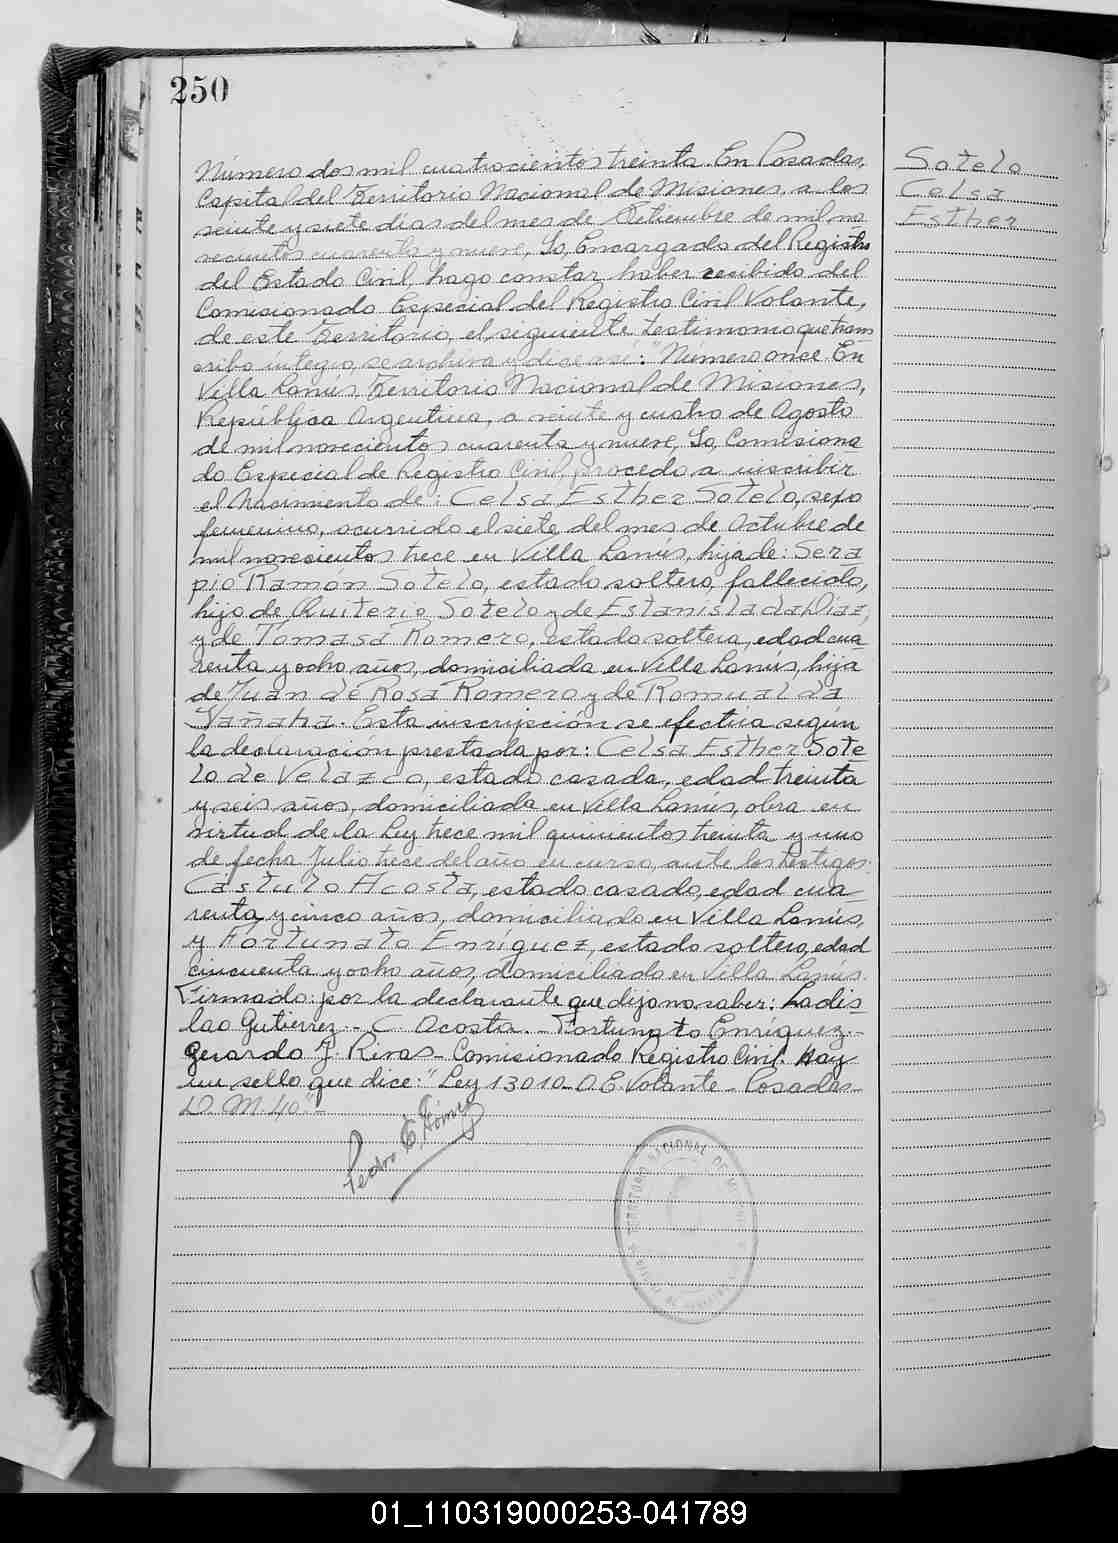 250
Número dos mil cuatrocientos treinta. En Posadas,
Capital del Territorio Nacional de Misiones, a los
veinte y siete días del mes de Setiembre de mil no
vecientos cuarenta y nueve, Yo, Encargado del Registro
del Estado Civil, hago constar haber recibido del
Comisionado Especial del Registro Civil Volante,
de este Territorio, el siguiente testimonio que trans
cribo íntegro, se archiva y dice así: "Número once. En
Villa Lanús, Territorio Nacional de Misiones,
República Argentina, a veinte y cuatro de Agosto
de mil novecientos cuarenta y nueve, Yo, Comisiona
do Especial de Registro Civil, procedo a inscribir
el Nacimiento de: Celsa Esther Sotelo, sexo
femenino, ocurrido el siete del mes de Octubre de
mil novecientos trece en Villa Lanús, hija de: Sera
pio Ramon Sotelo, estado soltero, fallecido,
hijo de Quiterio Sotelo y de Estanislada Diaz,
y de Tomasa Romero, estado soltera, edad cua
renta y ocho años, domiciliada en Villa Lanús, hija
de Juan de Rosa Romero y de Romualda
Yañaha. Esta inscripción se efectúa según
la declaración prestada por: Celsa Esther Sote
lo de Velazco, estado casada, edad treinta
y seis años, domiciliada en Villa Lanús, obra en
virtud de la Ley trece mil quinientos treinta y uno
de fecha Julio trece del año en curso, ante los testigos:
Castulo Acosta, estado casado, edad cua
renta y cinco años, domiciliado en Villa Lanús,
y Fortunato Enríguez, estado soltero, edad
cincuenta y ocho años, domiciliado en Villa Lanús.
Firmado: por la declarante que dijo no saber: Ladis
lao Gutierrez.- C. Acosta.- Fortunato Enríguez.-
Gerardo J. Rivas- Comisionado Registro Civil. Hay
un sello que dice: "Ley 13010-O.E. Volante-Posadas-
D. M. 40".-
Pedro E. Gómez
Sotelo
Celsa
Esther
TERRITORIO NACIONAL DE
01_110319000253-041789